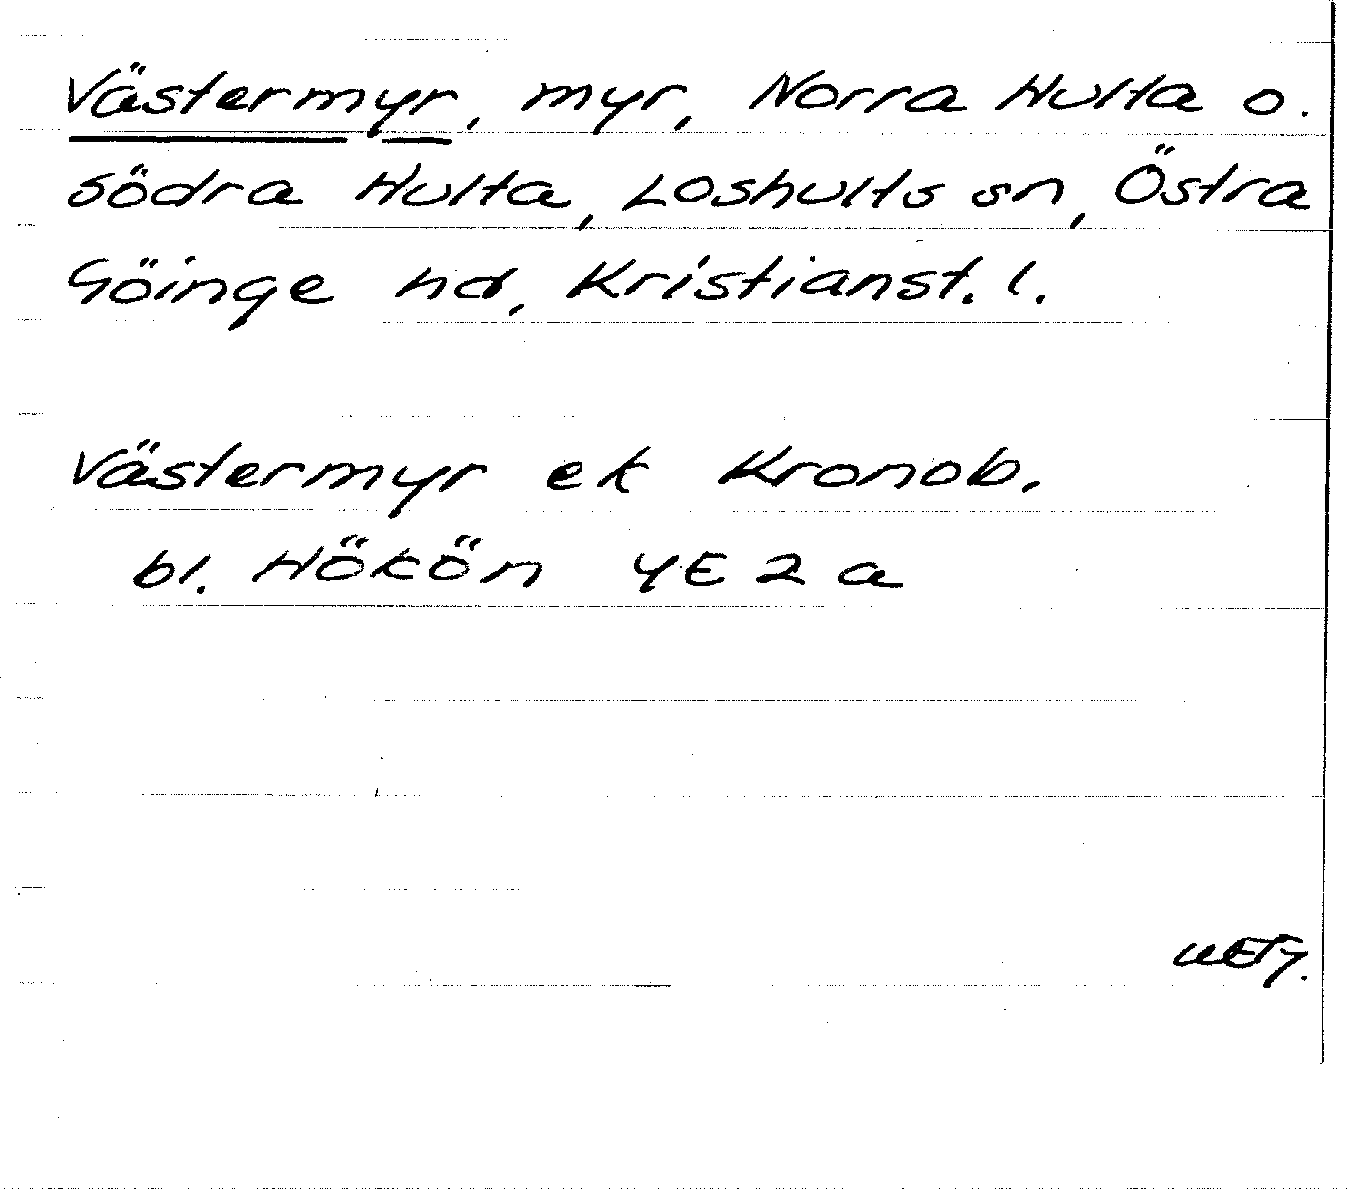 Västermyr, myr, Norra Hulta o.
södra Hulta, Loshults sn, Östra
Göinge hd, Kristianst. l.
Västermyr ek Kronob.
bl. Hökön 4E 2 a